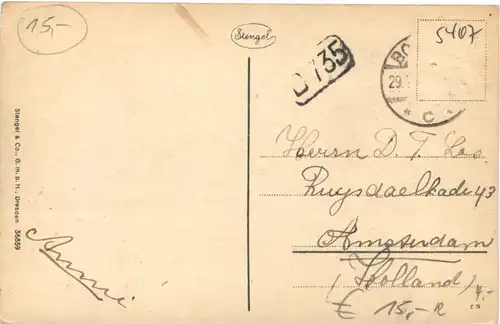 15,-
Stengel
D 735
5407
BO
29.
* C *
Herrn D. T. Los
Ruysdaelkade 43
Amsterdam
(Holland)
€ 15,- R
Stengel & Co., G. m. b. H., Dresden 36859
Annie